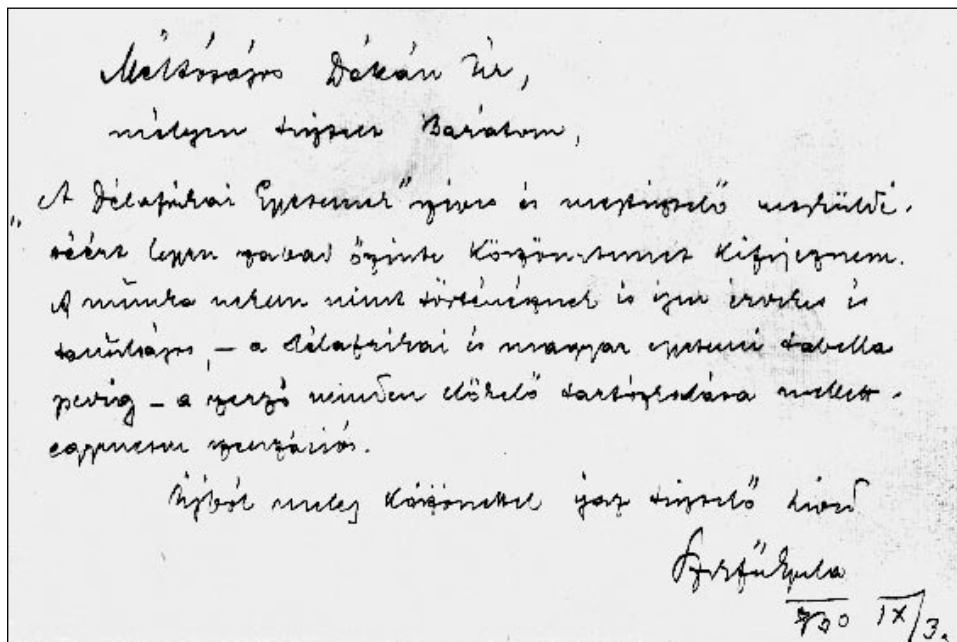 Méltóságos Dékán Úr,
mélyen tisztelt Barátom,
„A Délafrikai Egyetemek” szíves és megtisztelő megküldé-
séért legyen szabad őszinte köszönetemet kifejeznem.
A munka nekem mint történésznek is igen érdekes és
tanulságos, – a délafrikai és magyar egyetemi tabella
pedig – a szerző minden előkelő tartózkodása mellett –
egyenesen szenzációs.
Újból meleg köszönettel igaz tisztelő híved
Szekfű Gyula
IX/3.